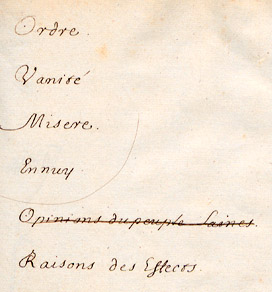 Ordre.
Vanité
Misere.
Ennuy
Opinions du peuple Saines.
Raisons des Effects.